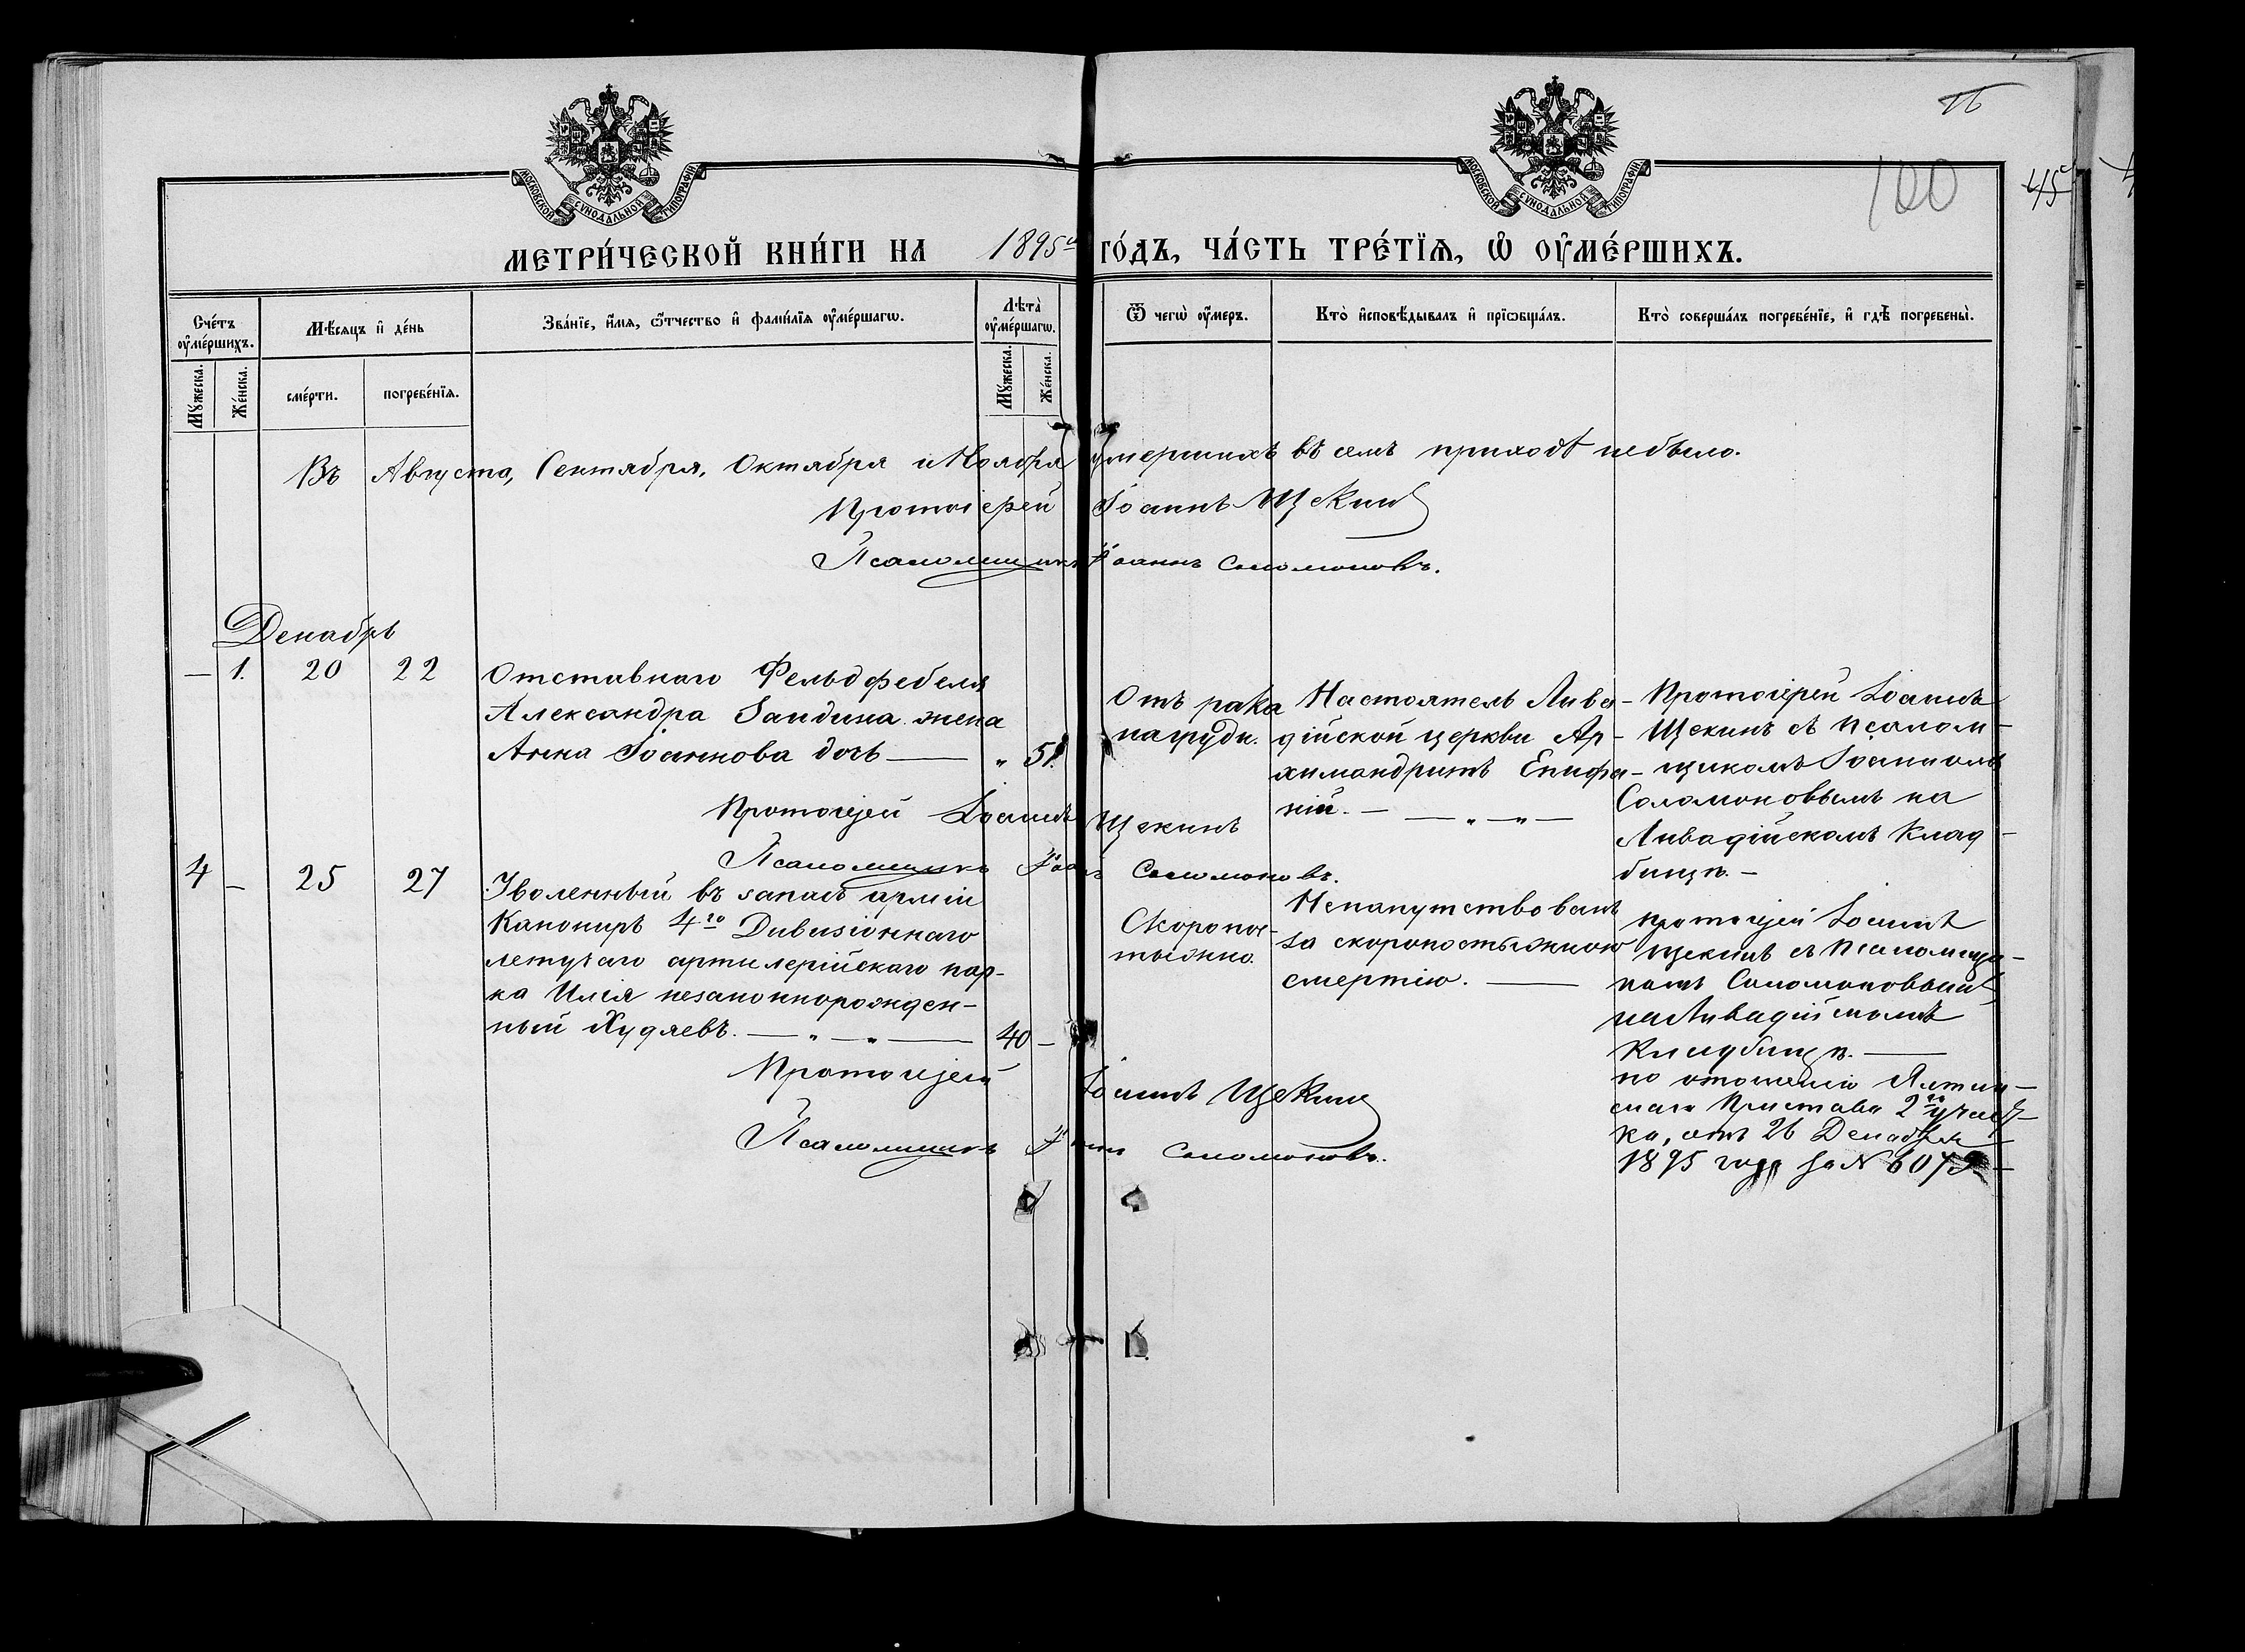 16
100
45
МОСКОВСКОЙ СѴНОДАЛЬНОЙ ТИПОГРАФІИ
МОСКОВСКОЙ СѴНОДАЛЬНОЙ ТИПОГРАФІИ
МЕТРИ́ЧЕСКОЙ КНИ́ГИ НА 1895й ГО́ДЪ, ЧА́СТЬ ТРЕ́ТЇѦ, Ѡ҆ ОУ҆МЕ́РШИХЪ.
Сче́тъ оу҆ме́ршихъ.
Мѣ́сяцъ и҆ де́нь
Зва́нїе, и҆́мѧ, ѻ҆́тчество и҆ фами́лїѧ оу҆ме́ршагѡ.
Лѣ́та оу҆ме́ршагѡ.
Ѿ чегѡ̀ оу҆́меръ.
Кто̀ и҆сповѣ́дывалъ и҆ прїѡбща́лъ.
Кто̀ соверша́лъ погребе́нїе, и҆ гдѣ̀ погребены̀.
Мꙋ́жеска.
Же́нска.
сме́рти.
погребе́нїѧ.
Мꙋ́жеска.
Же́нска.
Въ Августа, Сентября, Октября и Ноября умершихъ въ семъ приходѣ небыло.
Протоіерей Іоаннъ Щекинъ
Псаломщикъ Іоаннъ Соломоновъ.
Декабрь
— 1. 20 22
Отставнаго Фельдфебеля
Александра Заидина жена
Анна Іоаннова дочь — " 51.
Отъ рака
нагруди.
Настоятель Лива-
дійской церкви Ар-
химандритъ Епифа-
ній. — " — " —
Протоіерей Іоаннъ
Щекинъ съ псалом-
щикомъ Іоанномъ
Соломоновымъ на
Ливадійскомъ клад-
бищѣ. —
Протоіерей Іоаннъ Щекинъ
Псаломщикъ Іоаннъ Соломоновъ.
4 — 25 27
Уволенный въ запасъ арміи
Канониръ 4го Дивизіоннаго
летучаго артилерійскаго пар-
ка Илія незаконнорожден-
ный Худяевъ. — " — " — 40 —
Скоропос-
тыжно.
Ненапутствованъ
за скоропостыжною
смертію. —
Протоіерей Іоаннъ
Щекинъ съ псаломщи-
комъ Соломоновымъ
на Ливадійскомъ
Кладбищѣ. —
по отошенію Ялтин-
скаго Пристава 2го участ-
ка, отъ 26 Декабря
1895 года за № 6079 —
Протоіерей Іоаннъ Щекинъ
Псаломщикъ Іоаннъ Соломоновъ.